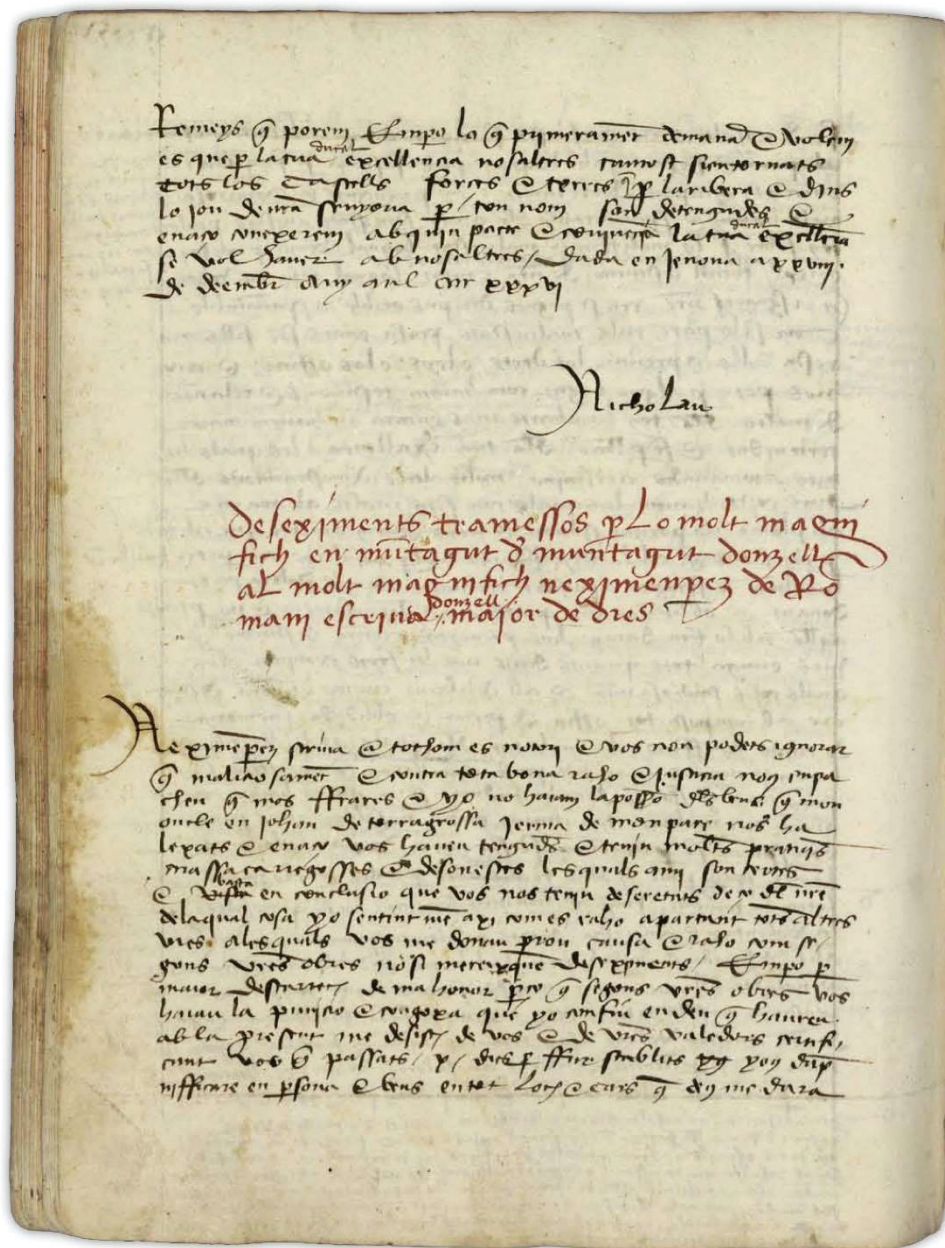 Remeys q̄ porem Empo lo q̄ primeramēt demanā & volem
es que p̄ la tua ducal excellencia nosaltres tantost sien tornats
tots los Castells forces & terres q̄ p̄ la ribera & dins
lo jou de nr̄a senyoria p̄ ton nom son detengudes &
en aço conexerem ab quin pacte & la tua ducal excellēcia
se vol haver ab nosaltres / Dada en Jenoua a xxviii.
de deembr̄ Any Mil cccc xxxvi
Nicholau
Deseximents tramessos p̄ Lo molt magni
fich en mūtagut d̄ muntagut donzell
al molt magnifich n eximenpeɜ de Ro
mani escriua donzell maior de dres
N eximēpeɜ scriua & tothom es notori & vos non podets ignorar
q̄ maliciosamēt & contra tota bona raho & justicia nos enpa
cheu q̄ mos ffrares & yo no haiam la possō dls bens q̄ mon
oncle en Johan de terragrossa jerma de mon pare nos ha
lexats & en aço vos haueu tengudes & teniu molts
les quals ami son certes
& en conclusio que vos nos teniu deseretats de ço dl nr̄e
de la qual cosa yo sentint mē axi com es raho apartant tots altres
vies a les quals vos me donau prou causa & raho com se/
gons vr̄es obres nos Empo p̄
maior descarrech de ma honor p̄ço q̄ segons vr̄es obres vos
haiau la punicio & que yo confiu en deu q̄ haureu
ab la present me desisch de vos & de vr̄es valedors certifi/
cant vos q̄ passats / x / dies p̄ ffur stablits yous dāp
nifficare en p̄sona & bens en tot loch & cars q̄ deu me dara